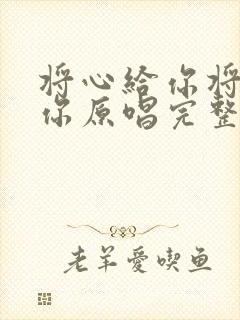 将心給你将
你原唱完整
老羊愛喫鱼